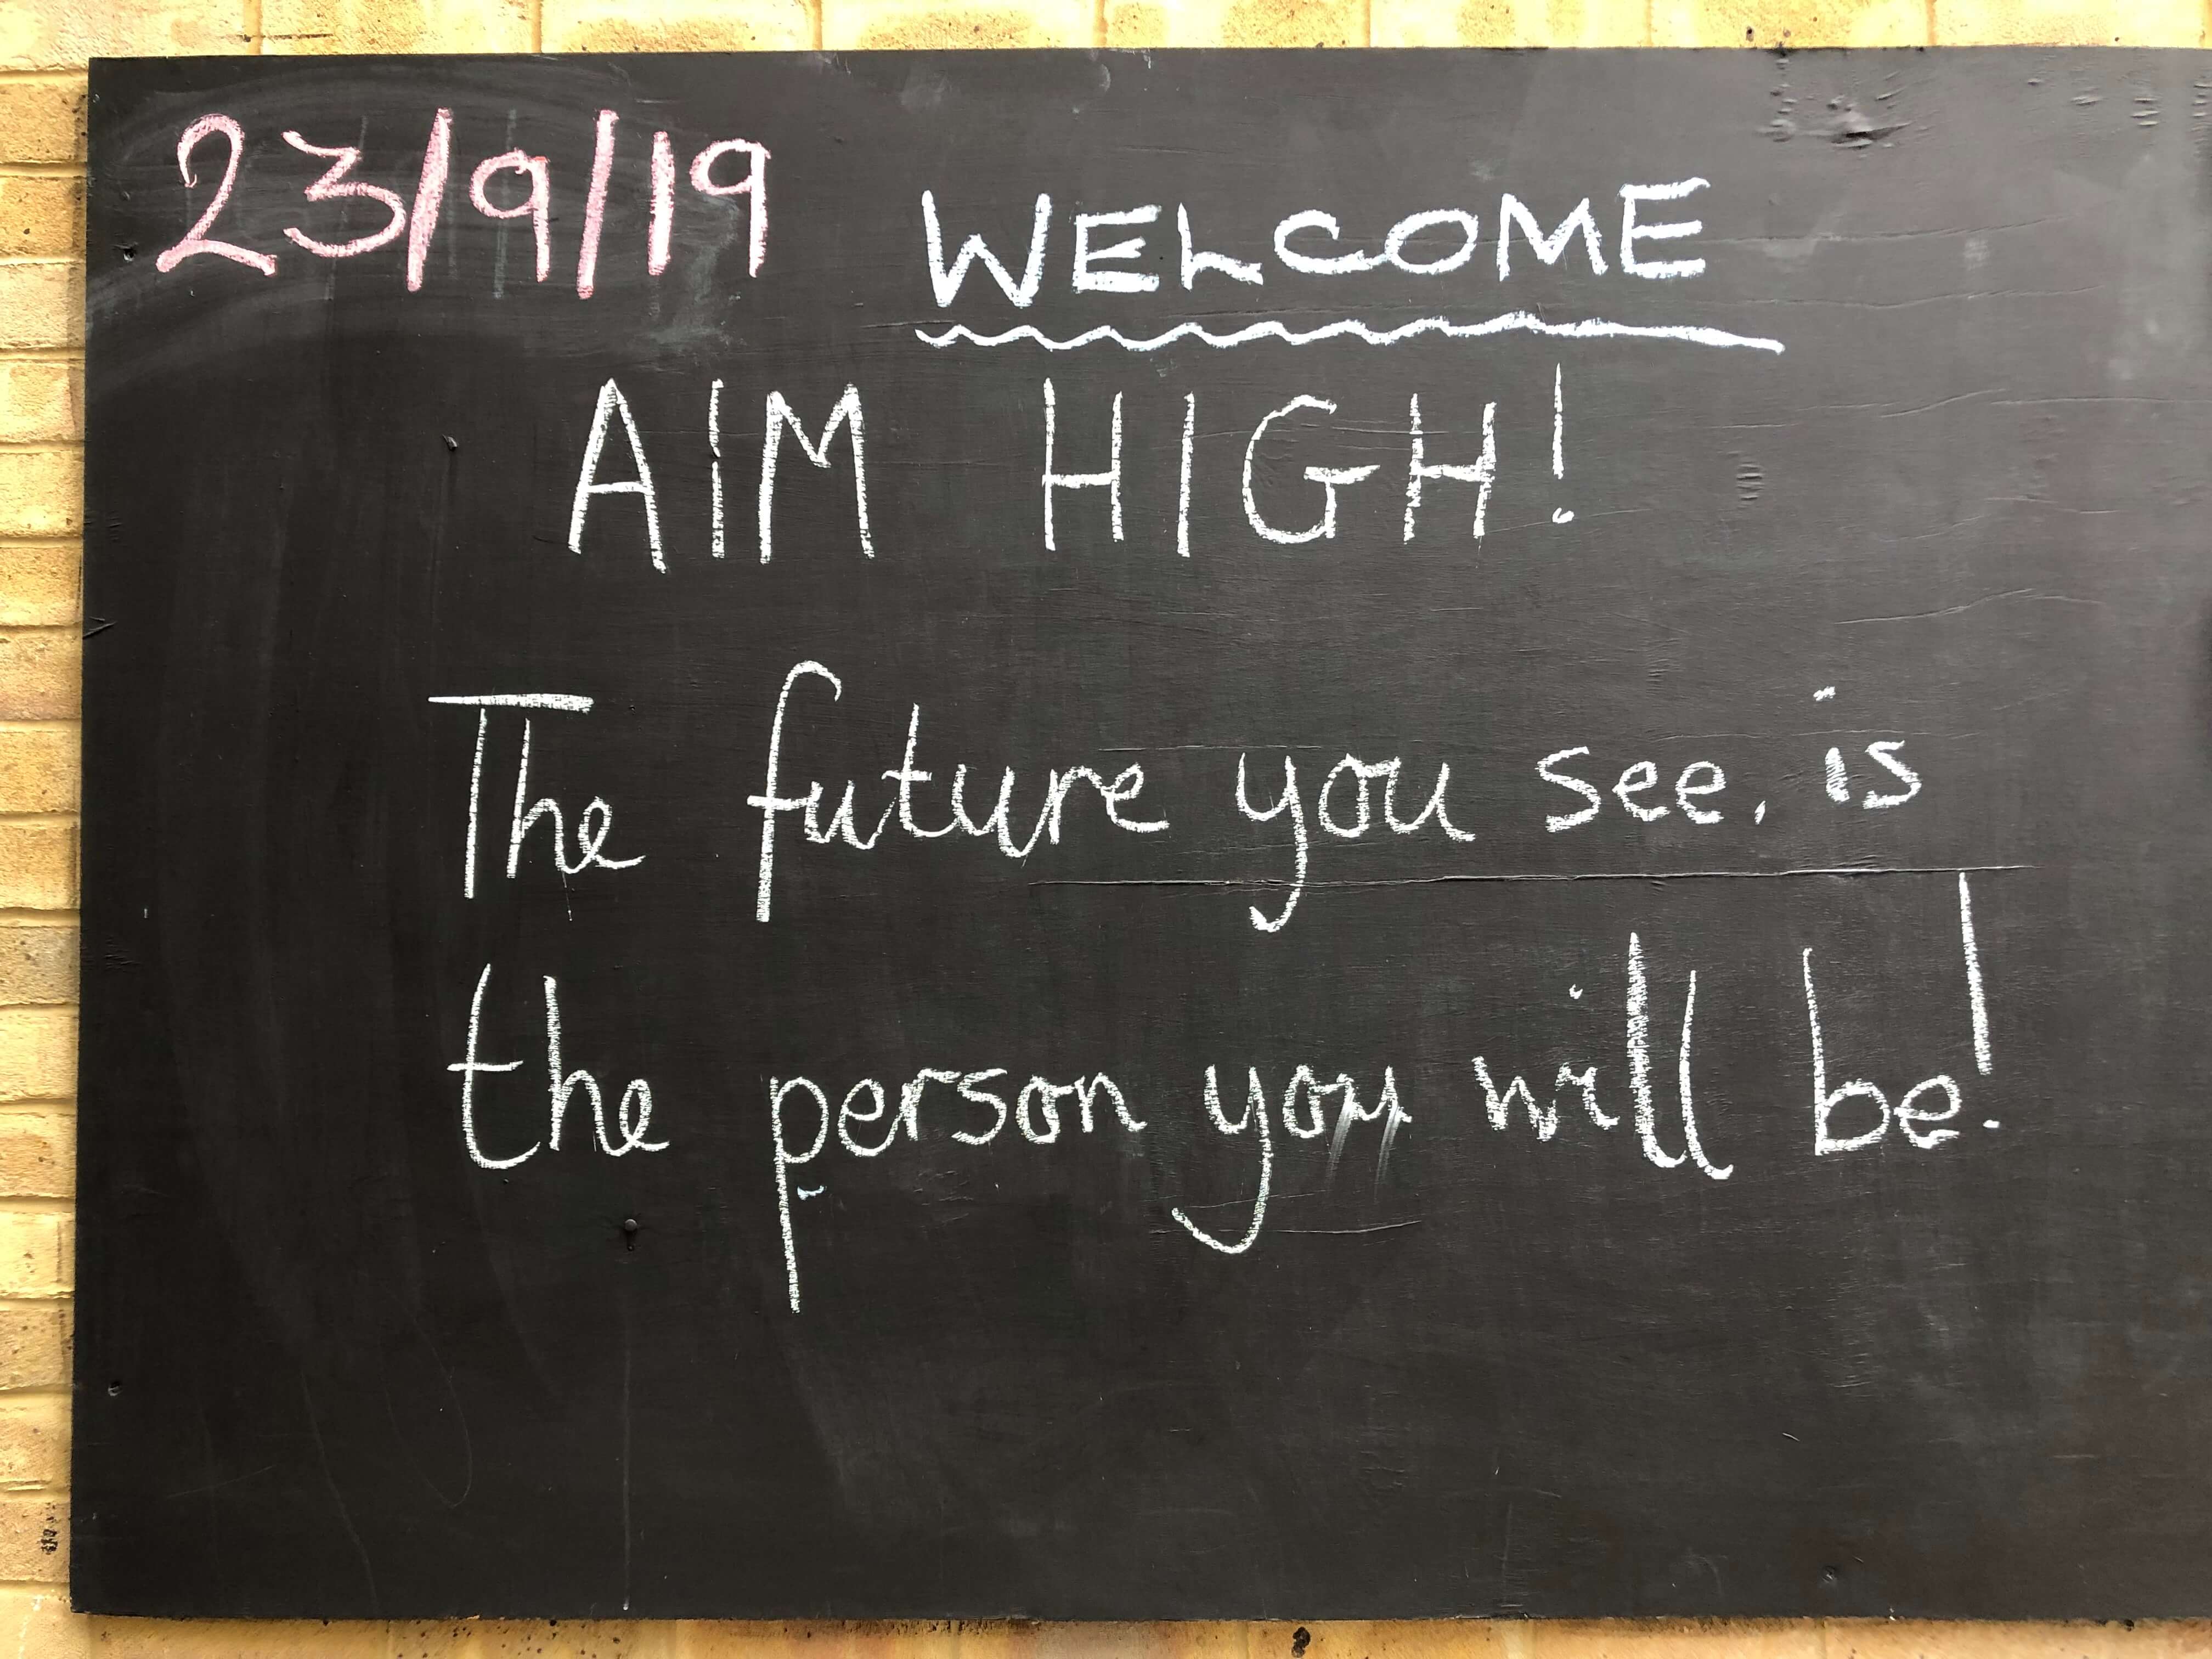 23/9/19
WELCOME
AIM HIGH!
The future you see, is
the person you will be!